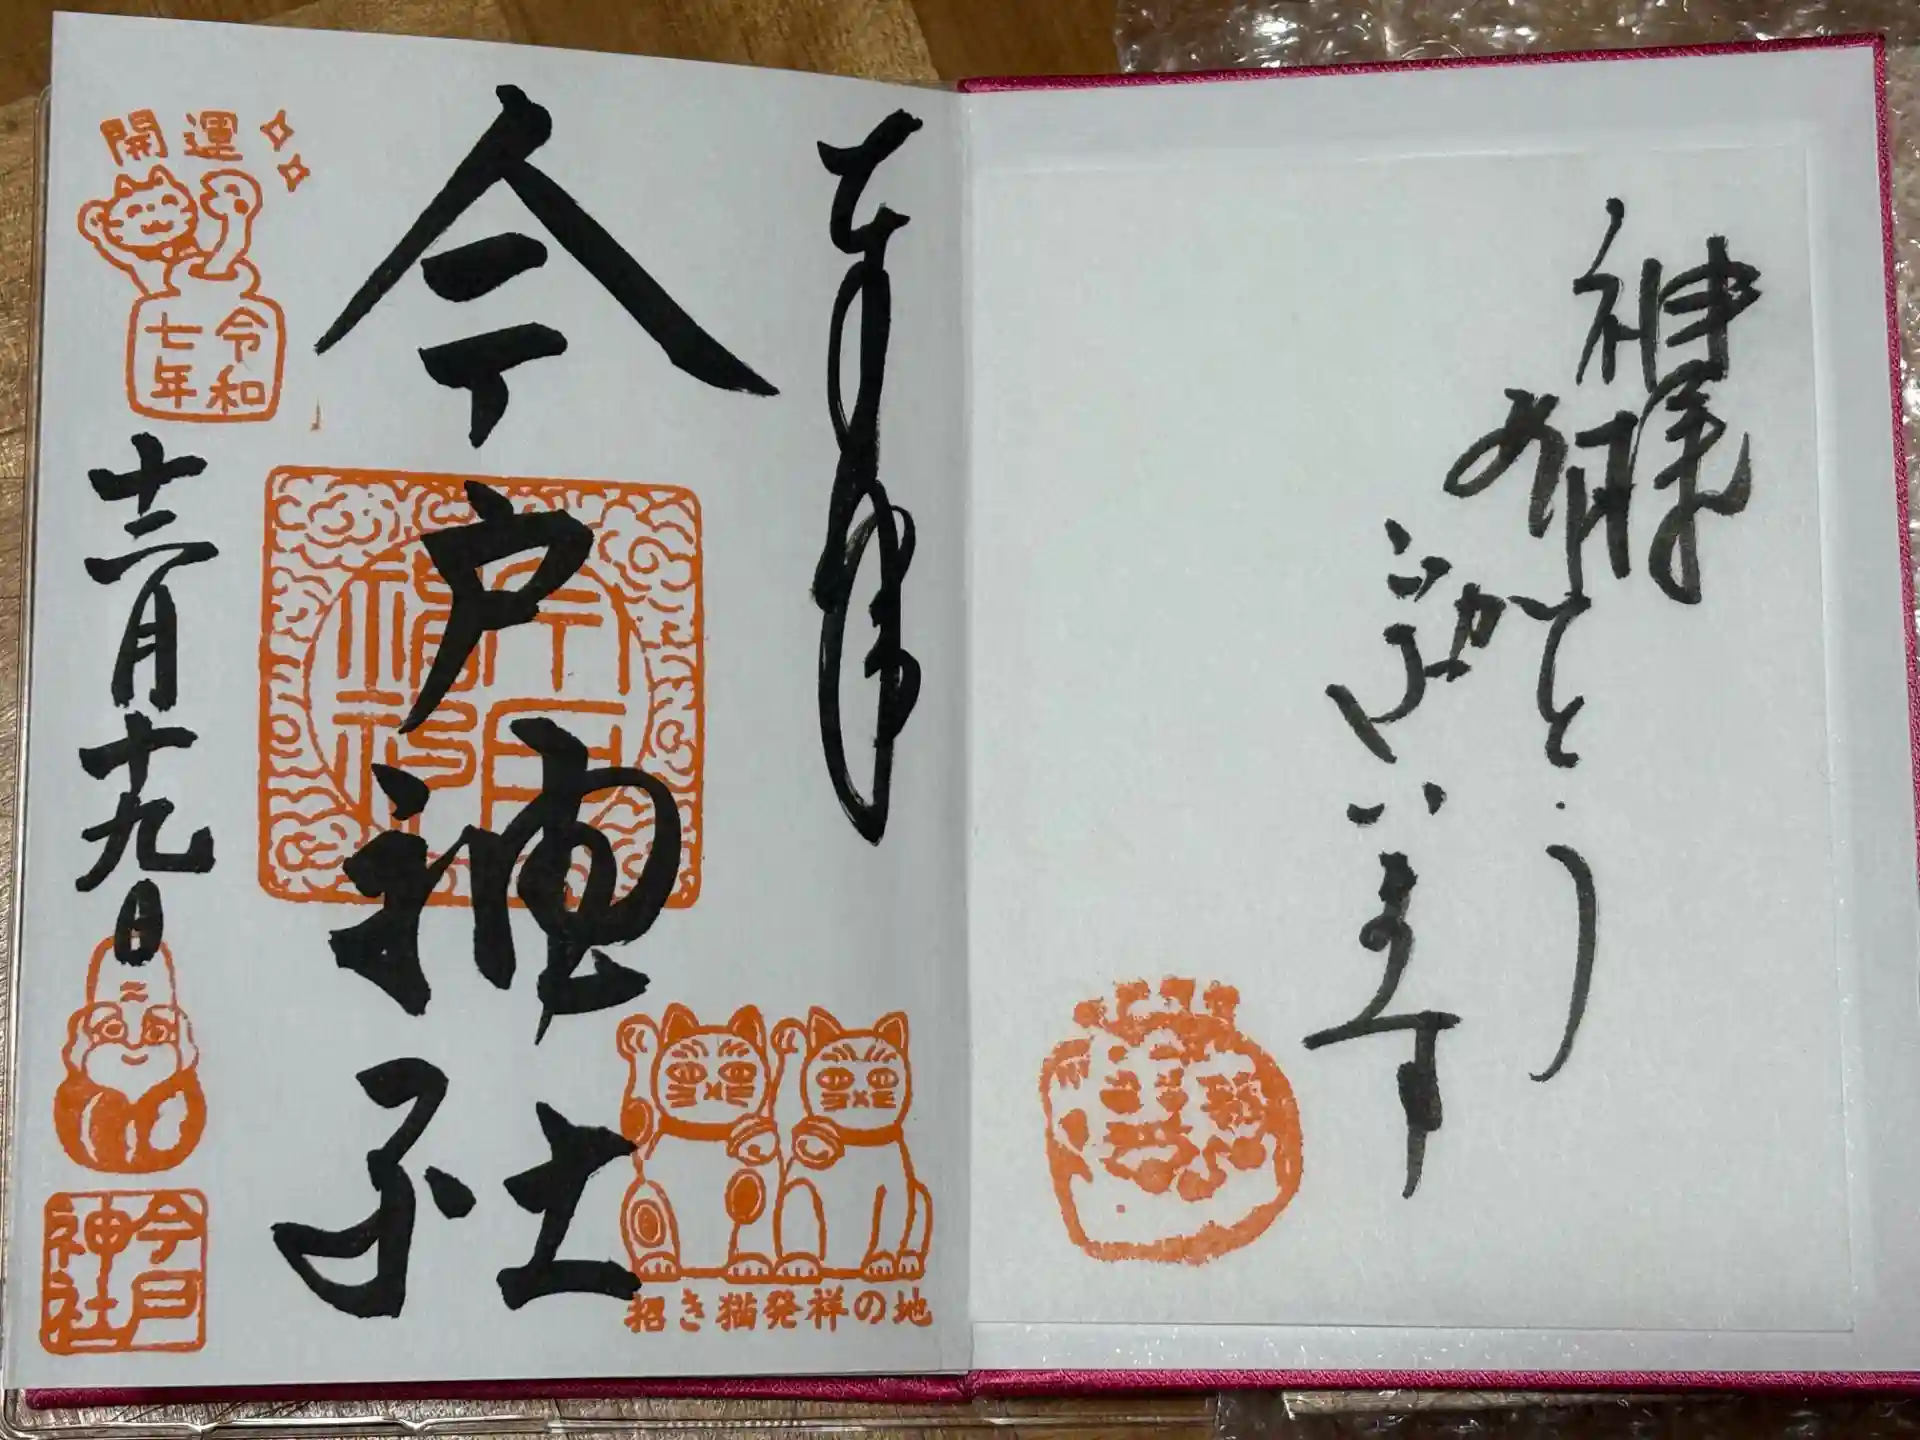 神様
有難とう
ございます
奉拝
今戸神社
開運
令和
七年
十二月十九日
今戸
神社
招き猫発祥の地